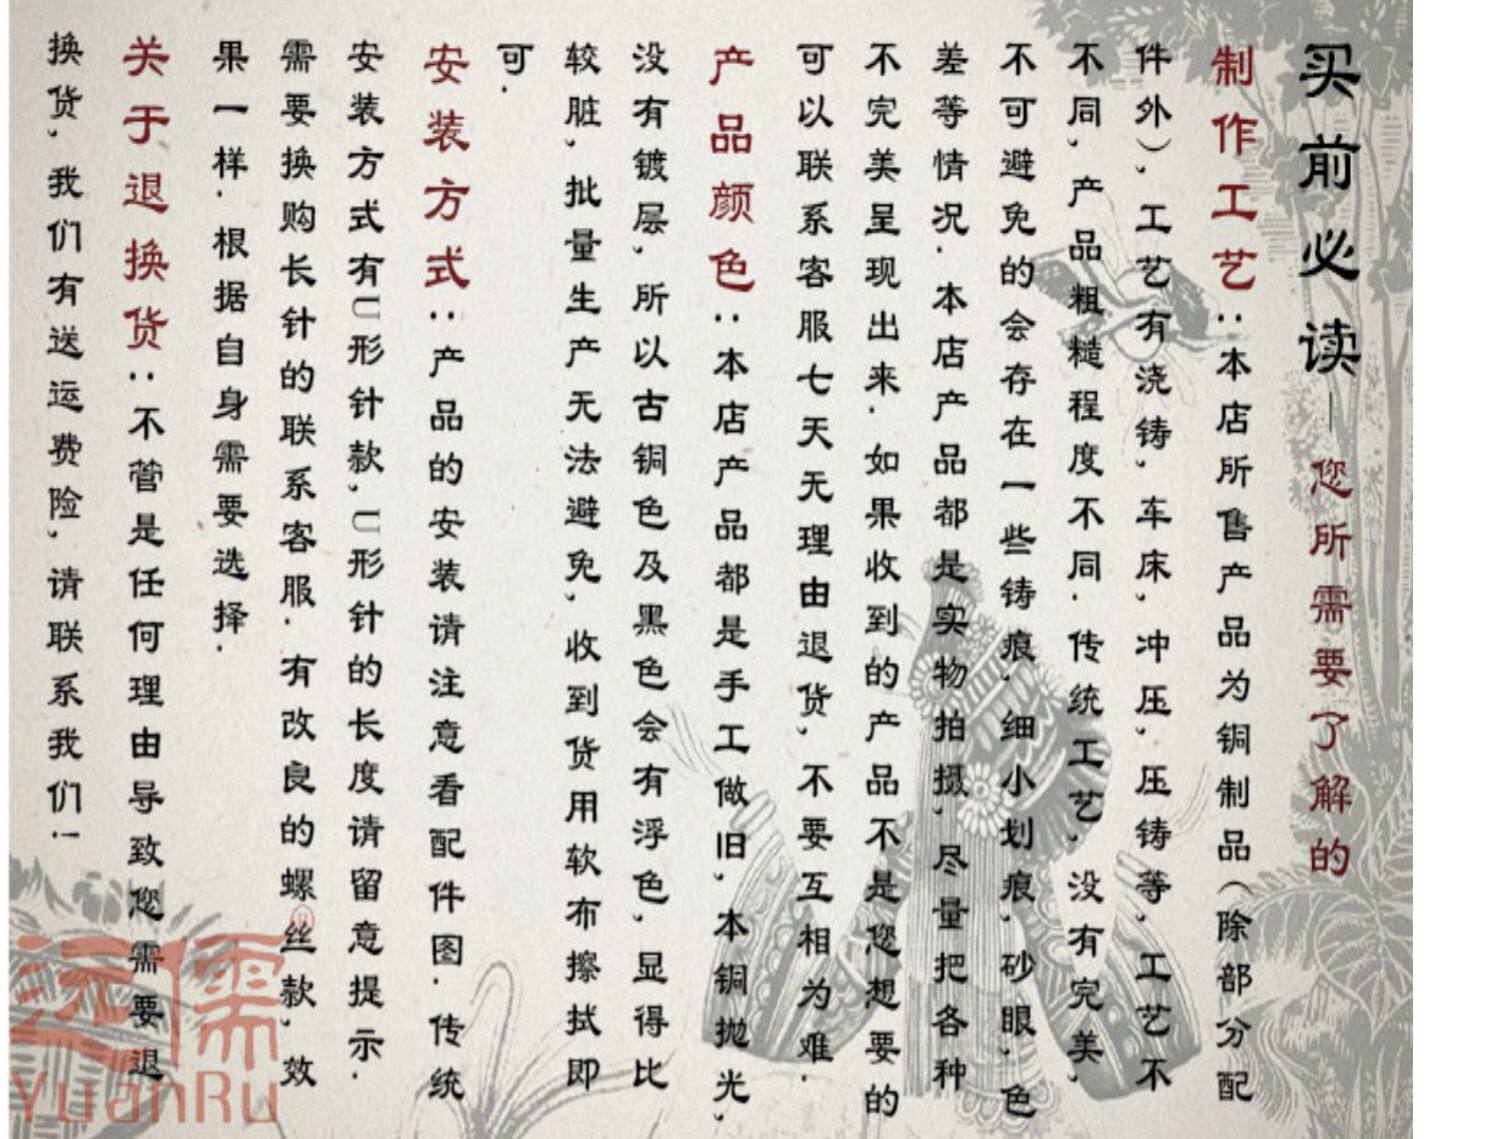 买前必读—您所需要了解的
制作工艺：本店所售产品为铜制品（除部分配
件外），工艺有浇铸，车床，冲压，压铸等，工艺不
不同，产品粗糙程度不同．传统工艺，没有完美，
不可避免的会存在一些铸痕，细小划痕，砂眼，色
差等情况．本店产品都是实物拍摄，尽量把各种
不完美呈现出来．如果收到的产品不是您想要的
可以联系客服七天无理由退货，不要互相为难．
产品颜色：本店产品都是手工做旧，本铜抛光，
没有镀层，所以古铜色及黑色会有浮色，显得比
较脏，批量生产无法避免，收到货用软布擦拭即
可．
安装方式：产品的安装请注意看配件图．传统
安装方式有U形针款，U形针的长度请留意提示．
需要换购长针的联系客服．有改良的螺丝款，效
果一样．根据自身需要选择．
关于退换货：不管是任何理由导致您需要退
换货，我们有送运费险，请联系我们！
远儒®
YuanRu